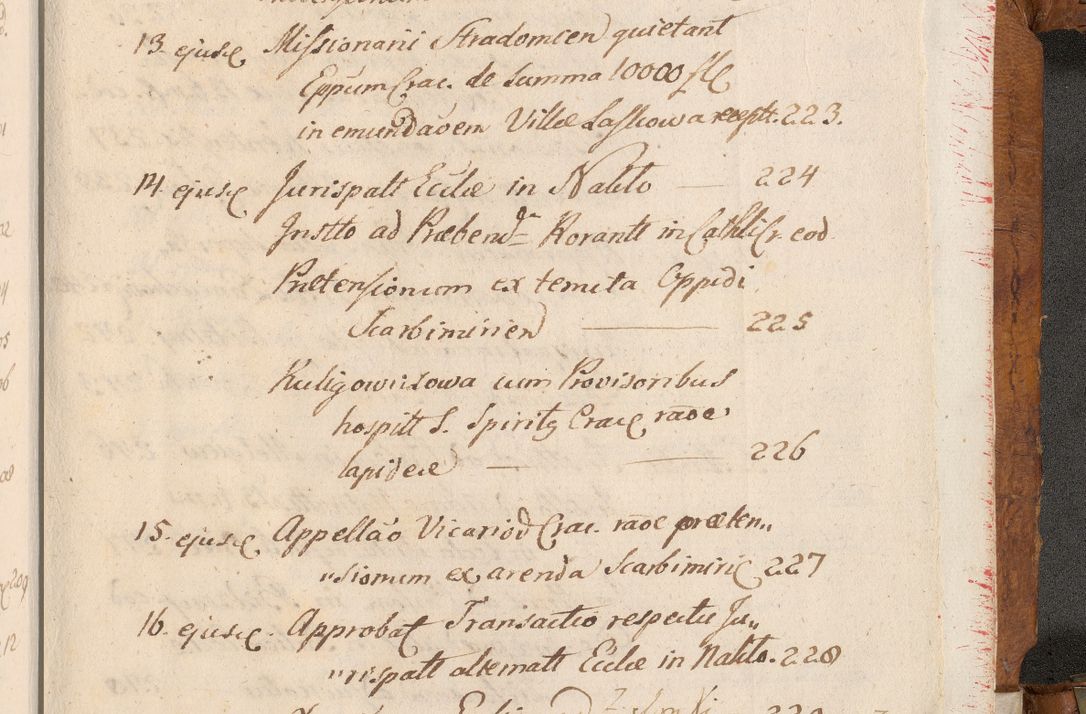 13. ejusd. Missionarii Stradomien quietant
Eppum Crac. de Summa 10000 fl
in emundaõem Villæ Laskowa recept. 223.
14. ejusd. Jurispatt Ecclæ in Nakło — 224
Instto ad Præbend Rorantt in Cathli Cr. eod.
Prætensionum ex tenuta Oppidi
Skarbimirien — 225
Kuligowiszowa cum Provisoribus
hospitt S. Spiritq Crac raõe
lapideæ — — 226
15. ejusd. Appellaõ Vicariod Crac. raõe præten„
„sionum ex arenda Scarbimiric 227
16. ejusd. Approbat Transactio respectu Ju„
„rispatt alternatt Ecclæ in Nakło. 228
209
12